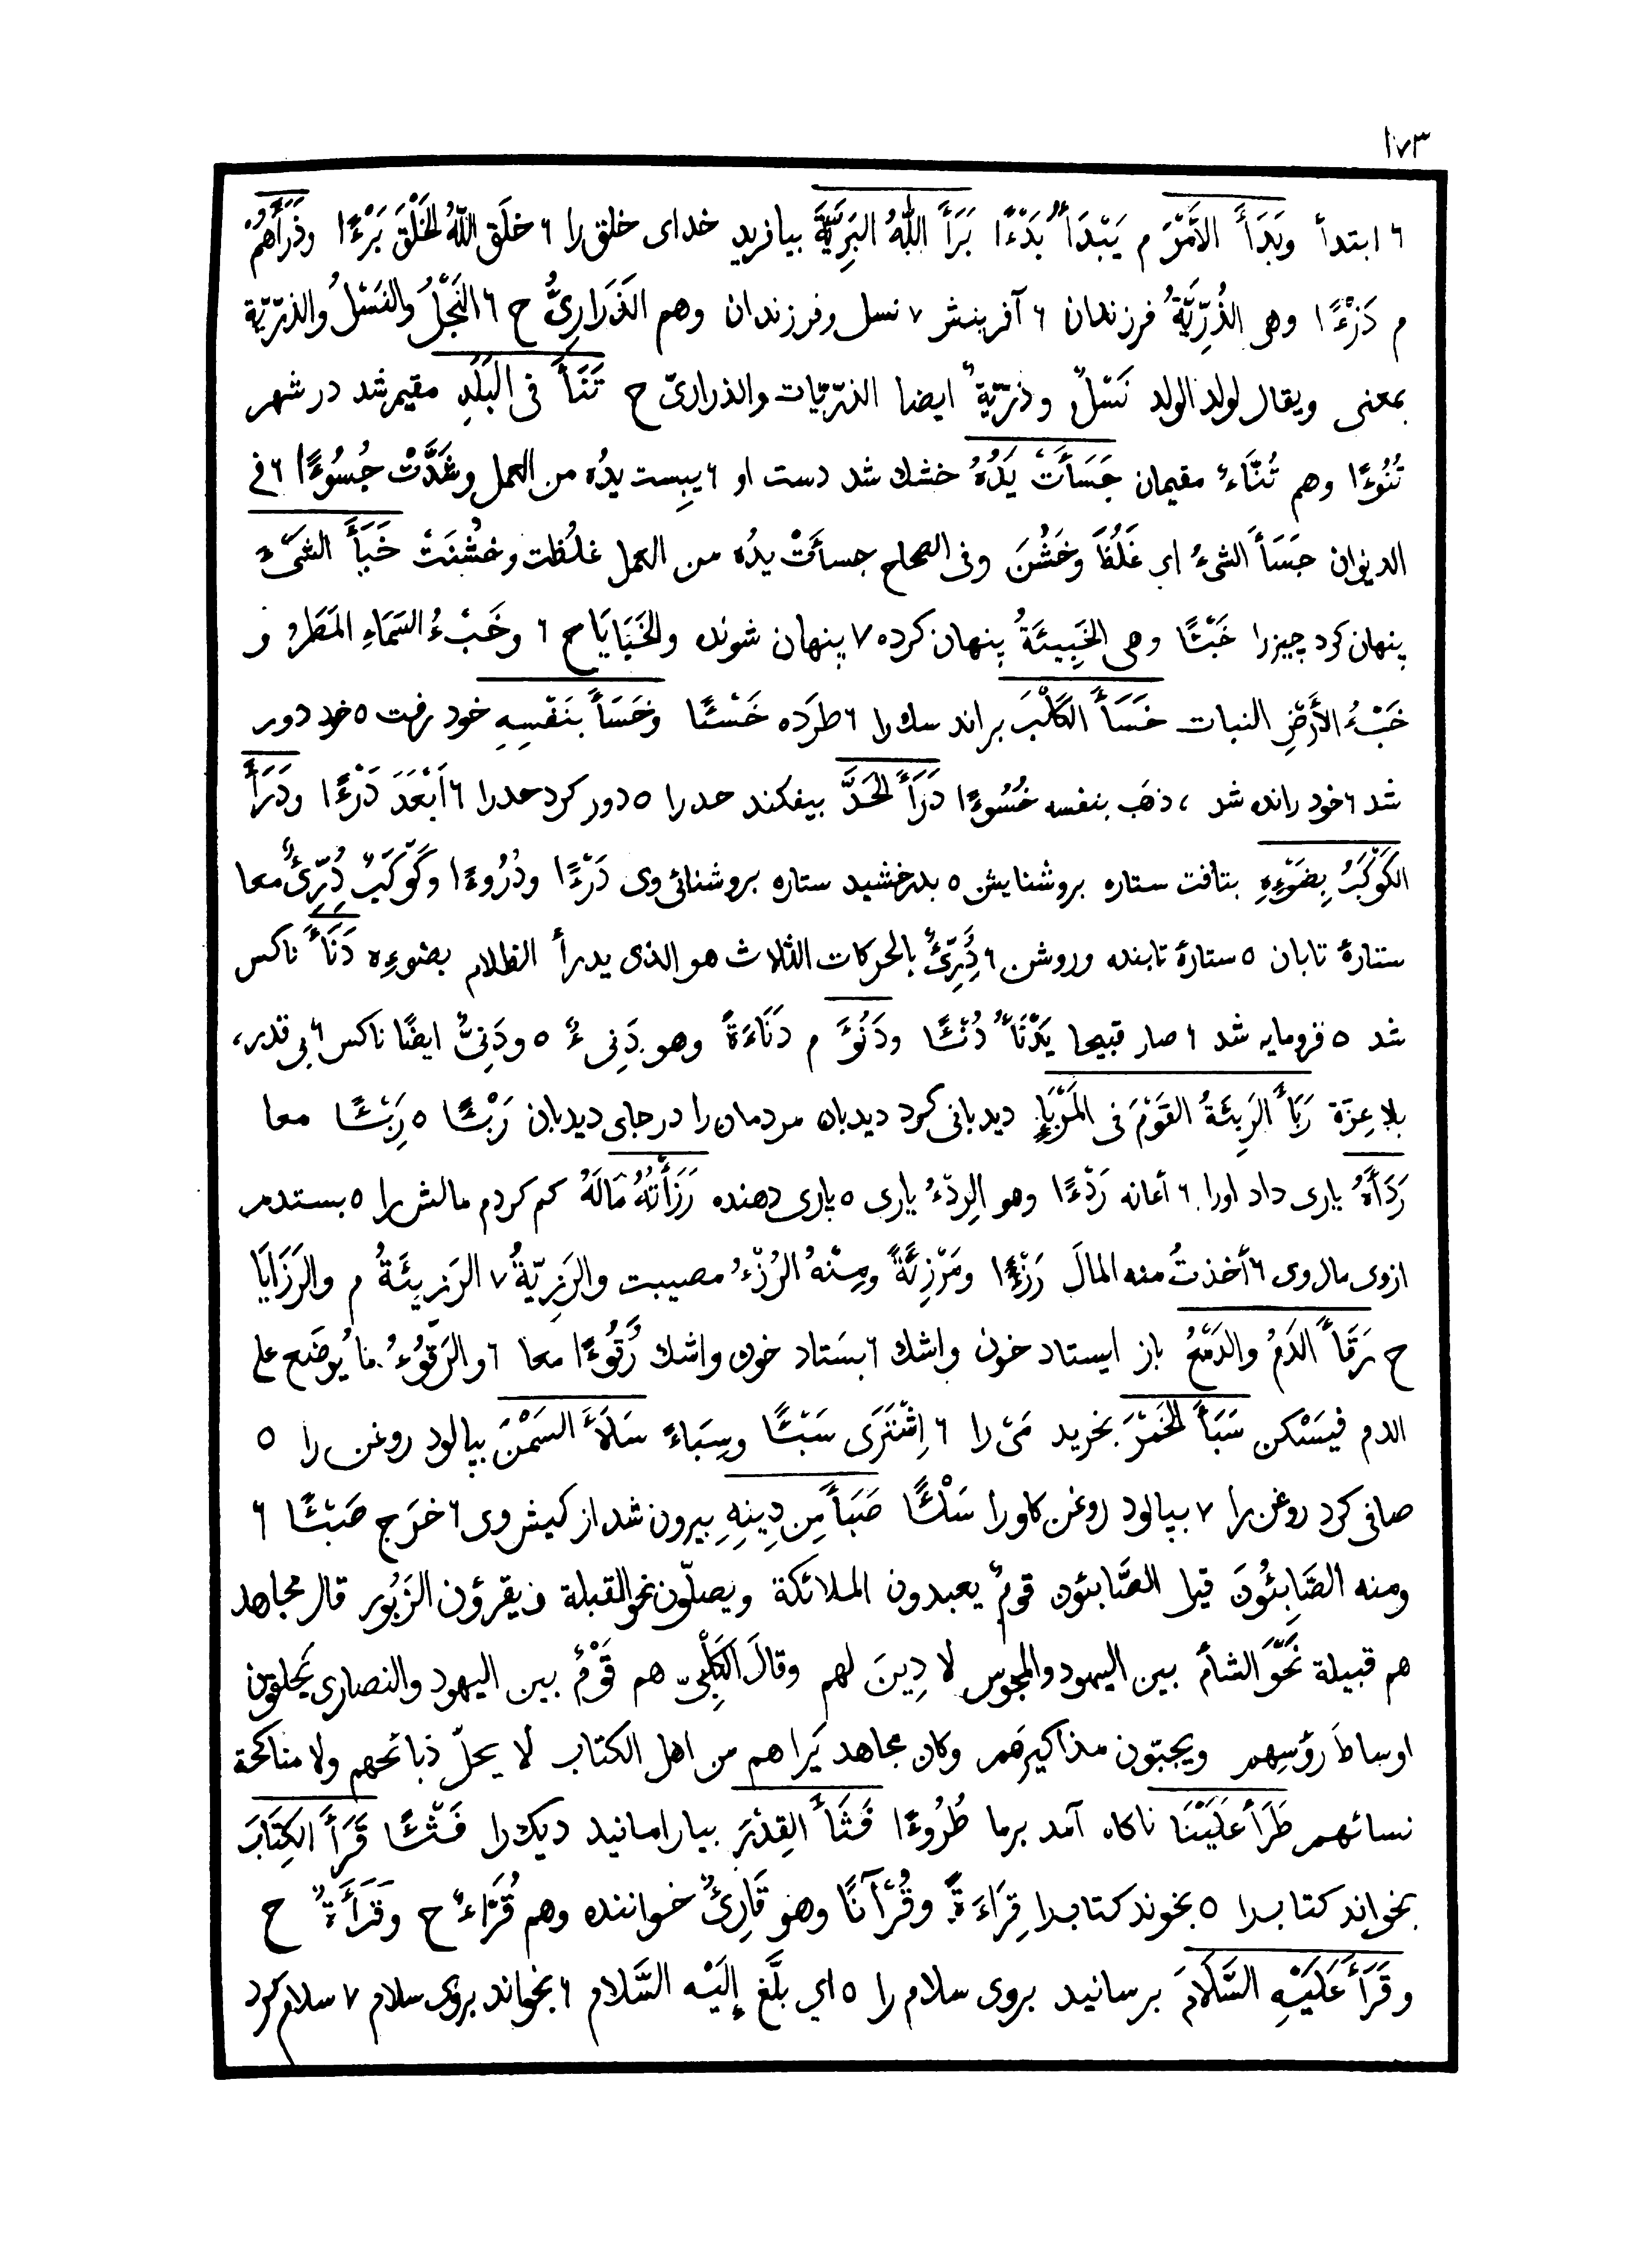 ١٧٣
٦ ابتدأ وبَدَأَ الأَمْرَ م يَبْدَأُ بَدْءًا بَرَأَ اللّٰهُ البَرِيَّةَ بيافريد خداى خلق را ٦ خلَق اللّٰهُ الخَلْقَ بَرْءًا وذَرَأَهُمْ
م ذَرْءًا وهى الذُرِّيَّةُ فرزندان ٦ آفرينش ٧ نسل وفرزندان وهم الذَرَارِىُّ ح ٦ النَجْلُ والنَسْلُ والذرّيّة
بمعنى ويقال لولد الولد نَسْلٌ وذرّيّةٌ ايضا الذرّيّات والذرارىّ ح تَنَأَ فى البَلَدِ مقيم شد در شهر
تُنُوءًا وهم تُنَّاءٌ مقيمان جَسَأَتْ يَدُهُ خشك شد دست او ٦ يبِست يدُه من العمل وشَدَّتْ جُسُوءًا ٦ فى
الديوان جَسَأَ الشىءُ اى غَلُظَ وخَشُنَ وفى الصحاح جسأَتْ يدُه من العمل غلُظت وخشُنَتْ خَبَأَ الشَىْءَ
پنهان كرد چيزرا خَبْئًا وهى الخَبِيئَةُ پنهان كرده ٧ پنهان شونده والخَبَايَا ح ٦ وخَبْءُ السَمَاءِ المَطَرُ و
خَبْءُ الأَرْضِ النبات خَسَأَ الكَلْبَ براند سك را ٦ طرَده خَسْئًا وخَسَأَ بنَفْسِهِ خود رفت ٥ خود دور
شد ٦ خود رانده شد ، ذهَب بنفسه خُسُوءًا دَرَأَ الحَدَّ بيفكند حدرا ٥ دور كرد حدرا ٦ اَبْعَدَ دَرْءًا ودَرَأَ
الكَوْكَبُ بِضَوْءِهِ بتافت ستاره بروشنايش ٥ بدرخشيد ستاره بروشنائى وى دَرْءًا ودُرُوءًا وكَوْكَبٌ دُرِّىءٌ معا
ستارهٔ تابان ٥ ستارهٔ تابنده وروشن ٦ دُرِّىءٌ بالحركات الثلاث هو الذى يدرأ الظلام بضوءِه دَنَأَ ناكس
شد ٥ فرومايه شد ٦ صار قبيحا يَدْنَأُ دُنْئًا ودَنُؤَ م دَنَاءَةً وهو دَنِىءٌ ٥ ودَنِىٌّ ايضًا ناكس ٦ بى قدر،
بلا عِزّة رَبَأَ الرَبِيئَةُ القَوْمَ فى المَرْبَإِ ديدبانى كرد ديدبان مردمان را در جاى ديدبان رَبْئًا ٥ رِبْئًا معا
رَدَأَهُ يارى داد اورا ٦ أعانه رَدْءًا وهو الرِدْءُ يارى ٥ يارى دهنده رَزَأْتُهُ مَالَهُ كم كردم مالش را ٥ بستدم
ازوى مال وى ٦ أخذتُ منه المالَ رَزْءًا ومَرْزِئَةً ومِنْهُ الرُزْءُ مصيبت والرَزِيّةُ ٧ الرَزِيئَةُ م والرَزَايَا
ح رَقَأَ الدَمُ والدَمْعُ باز ايستاد خون واشك ٦ بستاد خون واشك رُقُوءًا معا ٦ والرَقُوءُ ما يُوضَع على
الدم فيَسْكن سَبَأَ الخَمْرَ بخريد مَىْ را ٦ اِشْتَرَى سَبْئًا وسِبَاءً سَلَأَ السَمْنَ بپالود روغن را ٥
صافى كرد روغن را ٧ بپالود روغن كاورا سَلْئًا صَبَأَ مِن دِينِهِ بيرون شد از كيش وى ٦ خرَج صَبْئًا ٦
ومنه الصَّابِئُونَ قيل الصَّابئون قومٌ يعبدون الملائكة ويصلّون نحو القبلة ويقرؤن الزَبُور قال مجاهد
هم قبيلة نَحْوَ الشأم بين اليهود والمجوس لا دِينَ لهم وقالَ الكَلْبِىّ هم قَوْمٌ بين اليهود والنصارى يَحلقون
اوساطَ رؤسِهم ويجبّون مذاكيرَهم وكان مجاهد يَراهم من اهل الكتاب لا يحلّ ذبائحهم ولا مناكحة
نسائهم طَرَأَ عَلَيْنَا ناكاه آمد برما طُرُوءًا فَثَأَ القِدْرَ بيارامانيد ديك را فَثْئًا قَرَأَ الكِتَابَ
بخواند كتابرا ٥ بخوند كتابرا قِرَاءَةً وقُرْآنًا وهو قَارِئٌ خواننده وهم قُرَّاءٌ ح وقَرَأَةٌ ح
وقَرَأَ عَلَيْهِ السَّلَامَ برسانيد بروى سلام را ٥ اي بلَّغ إلَيْه السَّلام ٦ بخواند بروى سلام ٧ سلام كرد